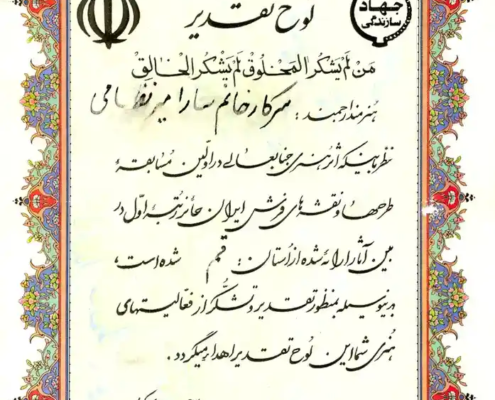 جهاد
سازندگی
لوح تقدیر
مَن لَم یَشکُرِ المَخلُوق لَم یَشکُرِ الخالِق
هنرمند ارجمند: سرکار خانم سارا میر نظامی
نظر باینکه اثر هنری جنابعالی در اولین مسابقه
طرحها و نقشه های فرش ایران حائز رتبه اول در
بین آثار ارائه شده از استان: قم شده است،
بدینوسیله بمنظور تقدیر و تشکر از فعالیتهای
هنری شما این لوح تقدیر اهداء میگردد.